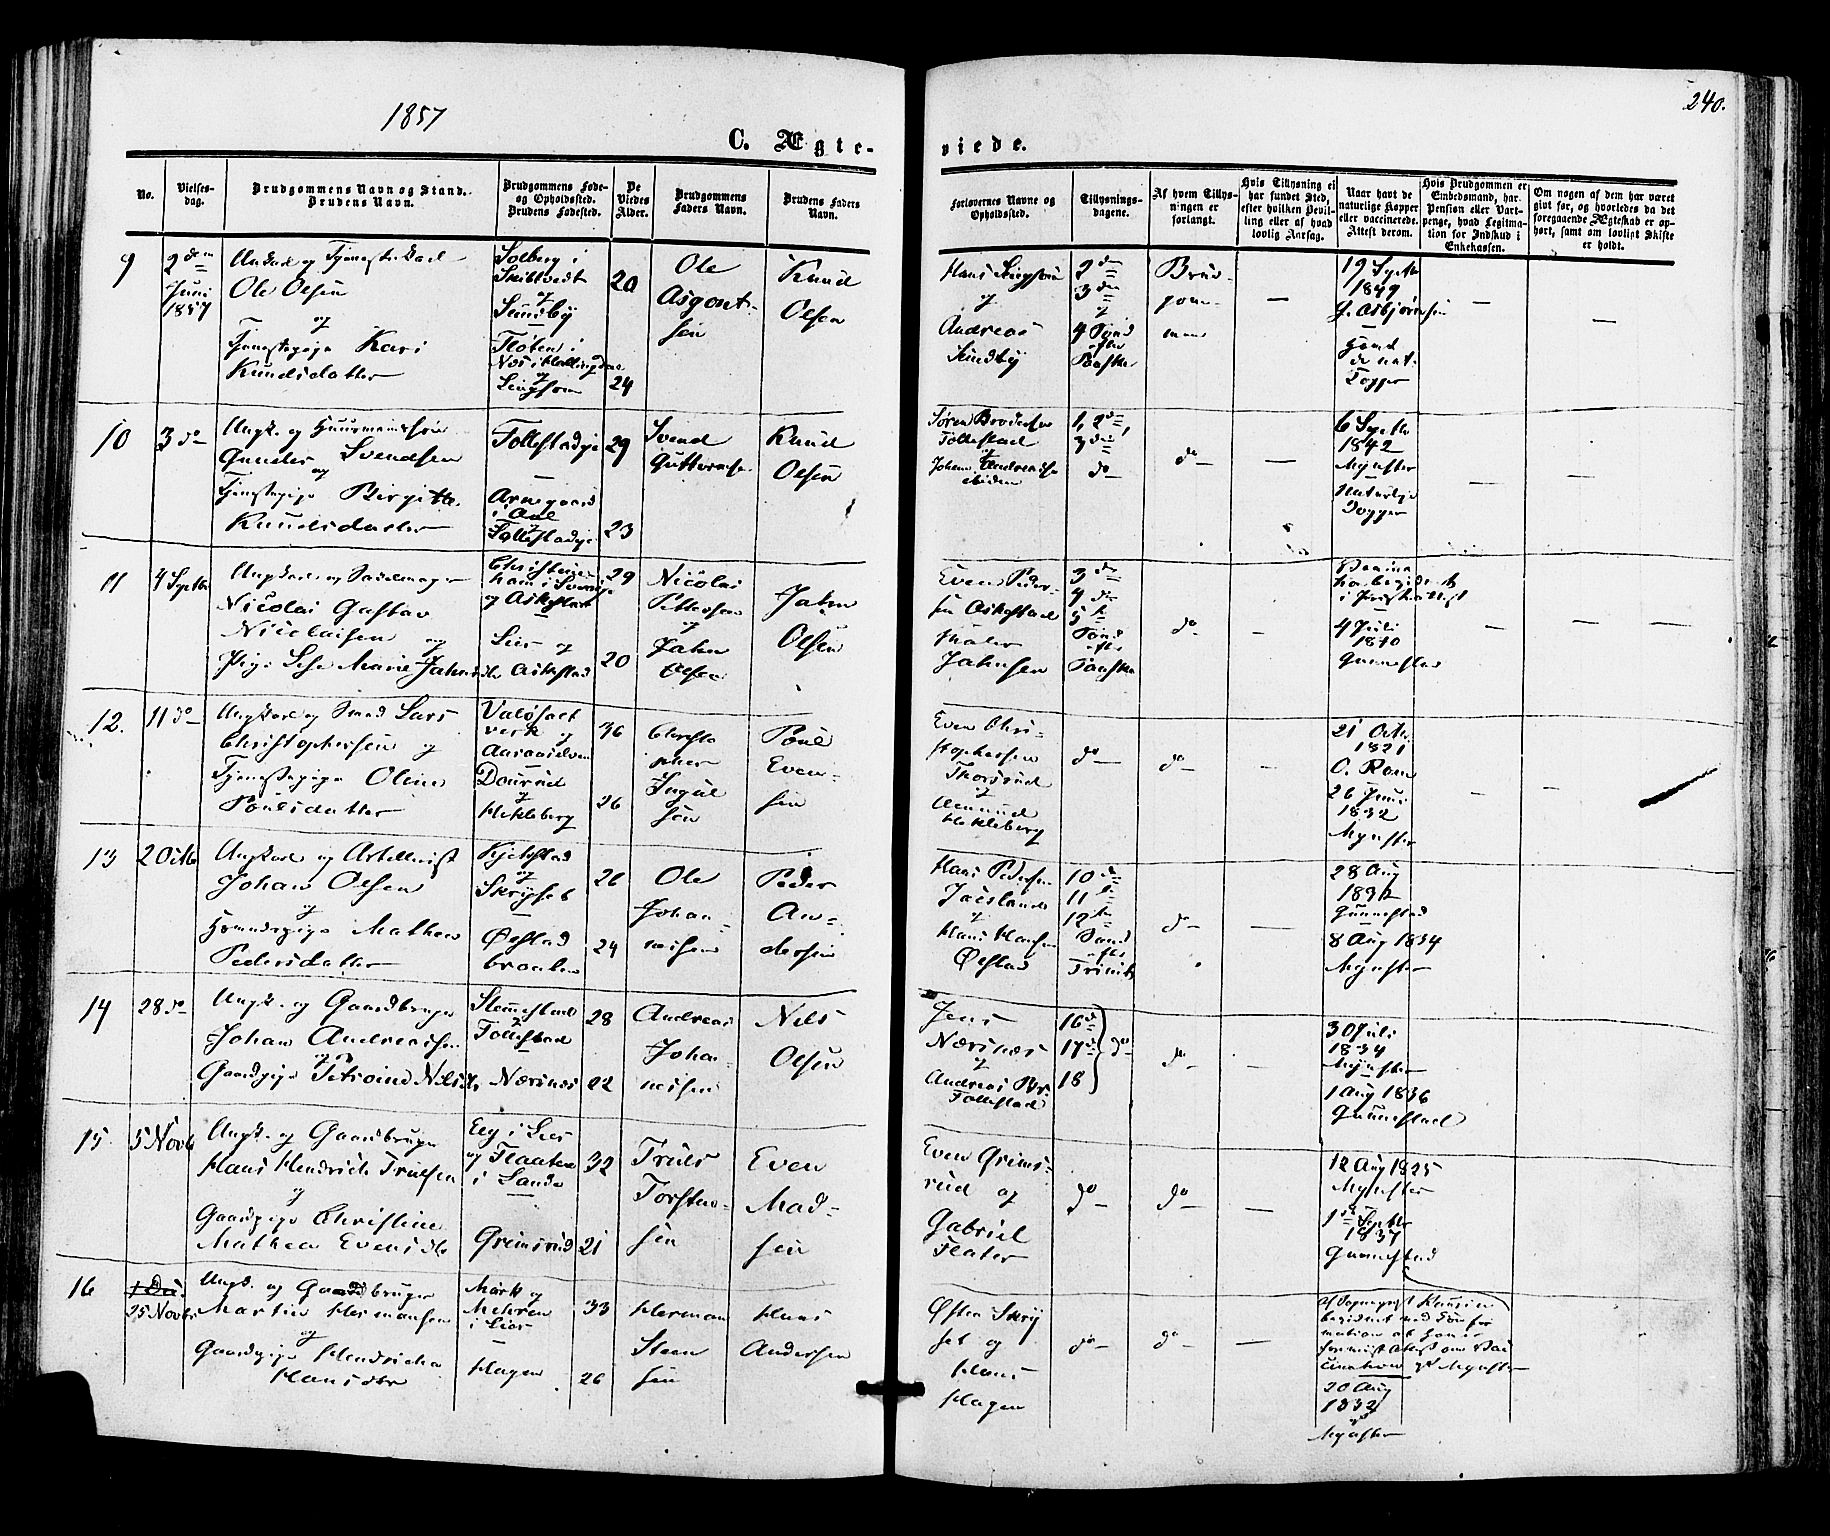 1857
240.
C. Ægte-
viede.
No.
Vielses-
dag.
Brudgommens Navn og Stand.
Brudens Navn.
BrudgommensFøde-
og Opholdssted.
Brudens Fødested.
De
Viedes
Alder.
Brudgommens
Faders Navn.
Brudens Faders
Navn.
Forlovernes Navne og
Opholdssted.
Tillysnings-
dagene.
Af hvem Tillys-
ningen er
forlangt.
Hvis Tillysning ei
har fundet Sted,
efter hvilken Bevil-
ling eller af hvad
lovlig Aarsag.
Naar havt de
naturlige Kopper
eller vaccinerede.
Attest derom.
Hvis Brudgommen er
Embedsmand, har
Pension eller Vart-
penge, hvad Legitima-
tion for Indskud i
Enkekassen.
Om nogen af dem har været
gift før, og hvorledes da det
foregaaende Ægteskab er op-
hørt, samt om lovligt Skifte
er holdt.
9
2den
Juni
1857
Ungkarl og Tjenestekarl
Ole Olsen
og
Tjenestepige Kari
Knudsdatter
Solberg i
Skibtvedt
og
Sundby
Fløten i
Næs i Hallingdal
og
20
24
Ole
Asgout-
sen
Knud
Olsen
Hans
og
Andreas
Sundby
2den
3die
og
4 Sønd
efter
Paaske
Brud-
gom-
men
—
19 Septbr
1849
J. Asbjørnsen
havd
de nat.
Kopper
—
—
10
3 do
Ungk. og Huusmandssøn
Gunder Svendsen
og
Tjenestepige Birgitte
Knudsdatter
Follestadeje
Arnegaard
i Aal
og
Follestadeje
29
23
Svend
Guttormsen
Knud
Olsen
Søren Brodersen
Follestad
og
Johan Andreassen
1, 2den,
3die
do
do
—
6 Septbr
1842
Mynster
Naturlige
Kopper
—
—
11
4 Septbr
Ungkarl og Sadelmager
Nicolai Gustav
Nicolaisen og
Pige Lise Marie Jahnsdtr
Christine-
ham i Sverige
og Askestad
Lier og
Askestad
29
20
Nicolai
Pettersen
og
Jahn
Olsen
Jahn
Olsen
Even Peder-
sen Askestad
Jahnsen
3die
4de
5te
Sønd
efter
Paaske
do
—
4 Juli
1840
Gunnestad
—
—
12.
11 do
Ungkarl og Smed Lars
Christophersen og
Tjenestepige Oline
Poulsdatter
og
Dourud
og
Hekleberg
36
26
Christo
pher
Ingul
sen
Poul
Even-
sen
Even Chri-
stophersen
Thorsrud
og
Amund
Hekleberg
do
do
—
21 Octbr
1821
O. Ram
26 Juni
1832
Mynster
—
—
13
2 Octb
Ungkarl og Artillerist
Johan Olsen
og
Gaardspige Mathea
Pedersdatter
Kjekstad
og
Skryset
Øvstad
braaten
26
24
Ole
Johan-
nesen
Peder
An-
dersen
Hans Pedersen
og
Hans Hansen
Øvstad
10de
11te
12te
Sønd
efter
Trinit
do
—
28 Aug
1832
Gunnestad
8 Aug 1834
Mynster
14
28 do
Ungk. og Gaardbruger
Johan Andreassen
og
Gaardpige Petrine Nilsdtr
Slemmestad
og
Follestad
Nærsnæs
28
22
Andreas
Johan-
nesen
Nils
Olsen
Jens
Nærsnæs
og
Andreas
Follestad
16de
17de
18
do
do
—
30 Juli
1834
Mynster
1 Aug 1836
Gunnestad
15
5 Novb
Ungk. og Gaardbruger
Hans Hendrich Trulsen
og
Gaardpige Christine
Mathea Evensdtr
Eeg i Lier
og Flaaten
i Sande
Grimsrud
32
21
Truls
Torsten-
sen
Even
Mad-
sen
Even Grims-
rud og
Gabriel
Flaten
do
do
—
12 Aug 1825
Mynster
1ste Septbr
1837
Gunnestad
16
25 Novbr
Ungk. og Gaardbruger
Martin Hermansen
og
Gaardpige Hendricka
Hansdtr
Mørk og
Mehren
i Lier
Hagen
33
26
Herman
Steen
sen
Hans
Andersen
Østen Skry
set og
Hans
Hagen
do
do
—
20 Aug
1832
Mynster